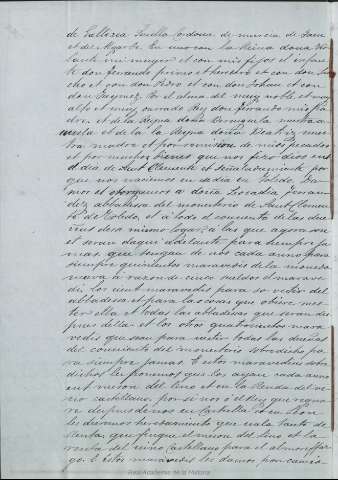 de Gallizia Sevilla Cordova de murcia de Jaen
et del Algarbe. En uno con la Reina dona Yo
lante mi muger et con mis fijos el infan
te don Ferando primero et heredero et con don San
cho et con don Pedro et con don Johan et con
don Jaymes. Por el alma del muy noble et muy
alto et muy onrrado Rey don Ferando mio pa
dre, et de la Reyna dona Berenguela nuestra a
vuela et de la Reyna dona Beatriz nues
tra madre et por remision de mios pecados
et por muchos bienes que nos fizo dios en
el dia de Sant Clemente et señaladamiente por
que nos nasciemos en su dia en Toledo, Da
mos et otorgamos a doña Leocadia Ferran
dez abbadessa del monesterio de Sant Clemen
te de Toledo, et a todo el convento de las due
nas desse mismo logar, a las que agora son
et seran daqui adelante para siempre ja
mas que hayan de nos cada anno para
siempre quinientos maravedis de la moneda
nueva a razon de cinco sueldos el marave
di: los cient maravedis para so vestir del
abbadessa et para las cosas que oviere mes
ter ella et todas las abbadessas que seran des
pues della et los otros quatrocientos mara
vedis que sean para vestir todas las dueñas
del convento del monesterio sobredicho pa
ra siempre jamas. Et estos maravedis sobre
dichos les ponemos que los ayan cada anno
en el meson del lino et en la Renda del ve
rio castellano, por si nos o el Rey que regna
re despues de nos en Castella et en Leon
les diessemos heredamiento que vala tanto de
Renta, que finque el meson del lino et la
renta del vino Castellano para el almoxarifad
go. E estos maravedis les damos por camio
Real Academia de la Historia